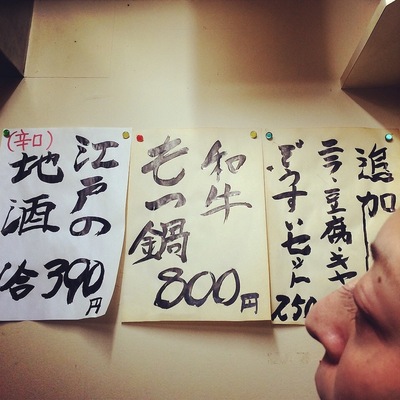 追加
ニラ・豆腐・キャ
ぞうすいセット
250
和牛
もつ鍋
800円
江戸の
(辛口)
地酒
合390円